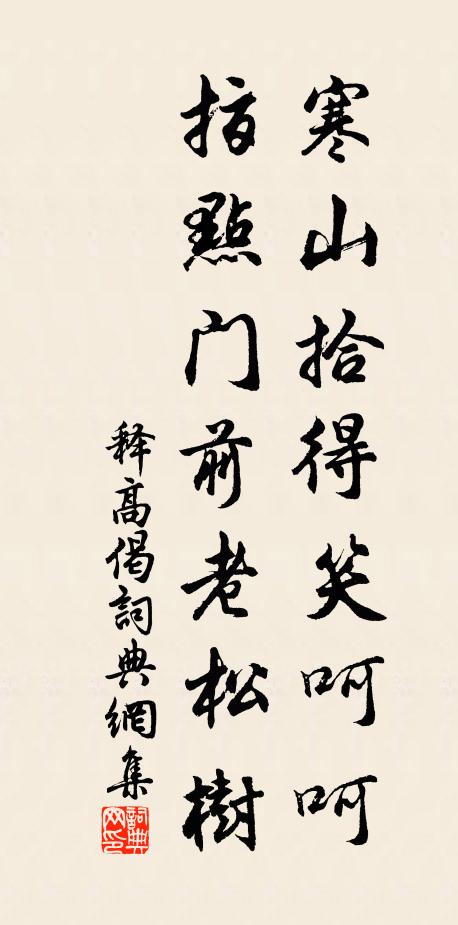 寒山拾得笑呵呵
指點门前老松樹
释高偈詞典網集
詞典网印